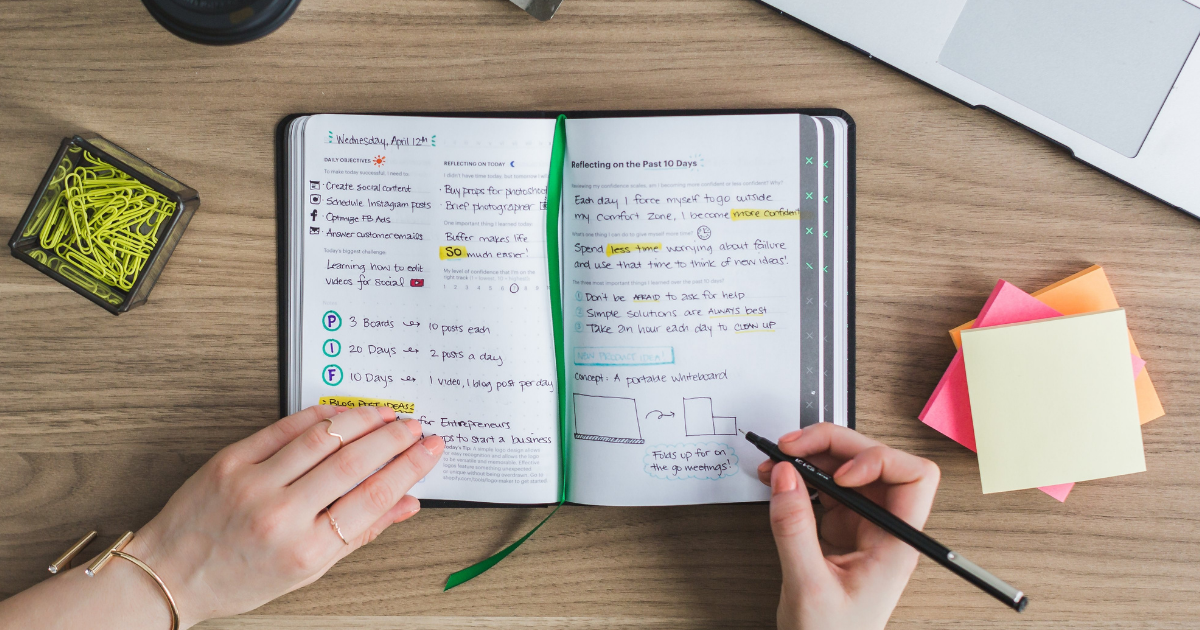 Wednesday, April 12th
DAILY OBJECTIVES
To make today successful, I need to:
Create social content
Schedule Instagram posts
Optimize FB Ads
Answer customer emails
Today's biggest challenge:
Learning how to edit
videos for social
P 3 Boards → 10 posts each
I 20 Days → 2 posts a day
F 10 Days → 1 video, 1 blog post per day
BLOG POST IDEAS:
for Entrepreneurs
to start a business
Today's Tip: A simple logo design should
REFLECTING ON TODAY
I didn't have time today, but tomorrow I will
· Buy props for photoshoot
· Brief photographer
One important thing I learned today:
Buffer makes life
SO much easier!
My level of confidence that I'm on the
right track
1 2 3 4 5 6 8 9
Reflecting on the Past 10 Days
Reviewing my confidence scales, am I becoming more confident or less confident? Why?
Each day I force myself to go outside
my comfort zone, I become more confident
What's one thing I can do to give myself more time?
Spend less time worrying about failure
and use that time to think of new ideas!
The three most important things I learned over the past 10 days?
1 Don't be AFRAID to ask for help
2 Simple solutions are ALWAYS best
3 Take an hour each day to CLEAN UP
NEW PRODUCT IDEA!
Concept: A portable whiteboard
Folds up for on
the go meetings!